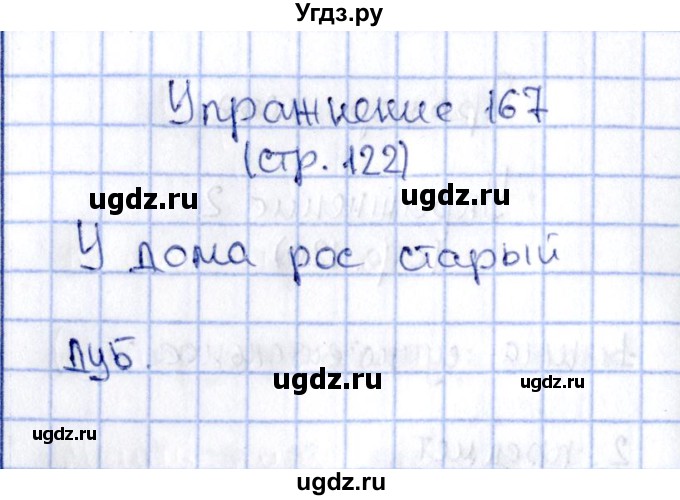 Угдз.ру
Упражнение 167
(стр. 122)
ugdz.ru ugdz.ru
У дома рос старый
дуб.
ugdz.ru ugdz.ru
ugdz.ru
ugdz.ru